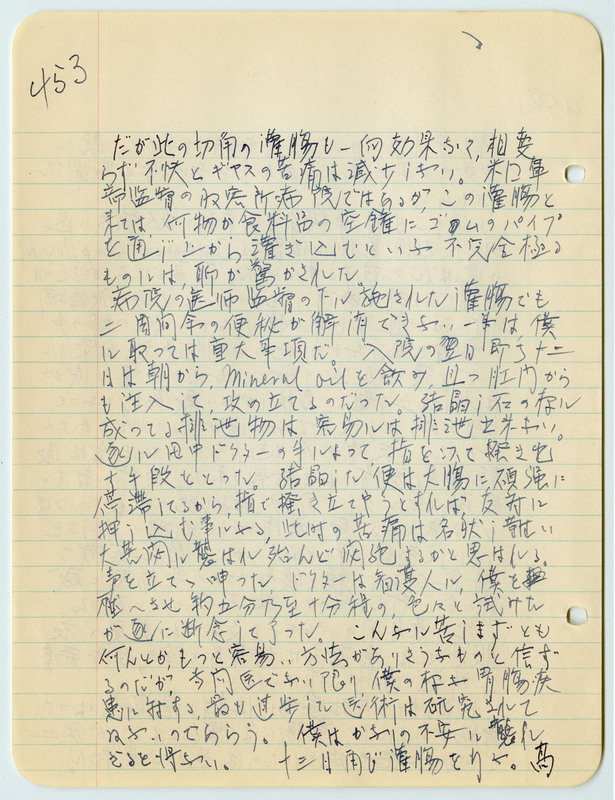 453
だが此の切角の灌腸も一向効果なく、相変
らず不快とギヤスの苦痛は減少しない。米国軍
部監督の収容所病院ではあるが、この灌腸と
来ては、何物か食料品の空鑵にゴームのパイプ
を通し上から灌ぎ込むといふ不完全極る
ものには、聊か驚かされた。
病院の医師監督の下に施された灌腸でも
二週間余の便秘が解消できない事は僕
に取っては重大事項だ。入院の翌日即ち十二
日は朝から、Mineral oilを飲み、且つ肛門から
も注入して、攻め立てるのだった。結晶し石の様に
成ってる排泄物は容易には排泄出来ない。
遂に田中ドクターの手によって、指を以って掻き出
す手段をとった。結晶した便は大腸に頑強に
停滞してるから、指で掻き立てやうとすれば、反対に
押し込む事になる、此時の苦痛は名状し難い
大苦悶に襲はれ殆んど悶絶するかと思はれる。
声を立てゝ呻った。ドクターは看護人に、僕を
押へさせ約五分乃至十分程の、色々と試みた
が遂に断念して了った。こんなに苦しまずとも
何んとか、もっと容易い方法がありさうなものと信ず
るのだが、専門医でない限り、僕の様な胃腸疾
患に対する、最も進歩した医術は研究されて
ゐないのであらう。僕はかなりの不安に襲れ
ざるを得ない。十三日再び灌腸をやる。高